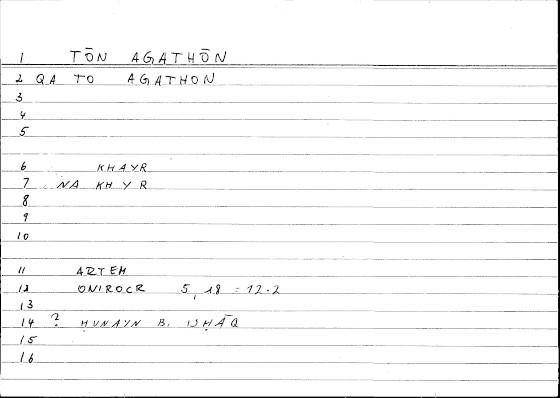 1 TŌN AGATHŌN
2 QA TO AGATHON
3
4
5
6 KHAYR
7 NA KHYR
8
9
10
11 ARTEM
12 ONIROCR 5, 18 = 12.2
13
14 ? ḤUNAYN B. ISḤĀQ
15
16